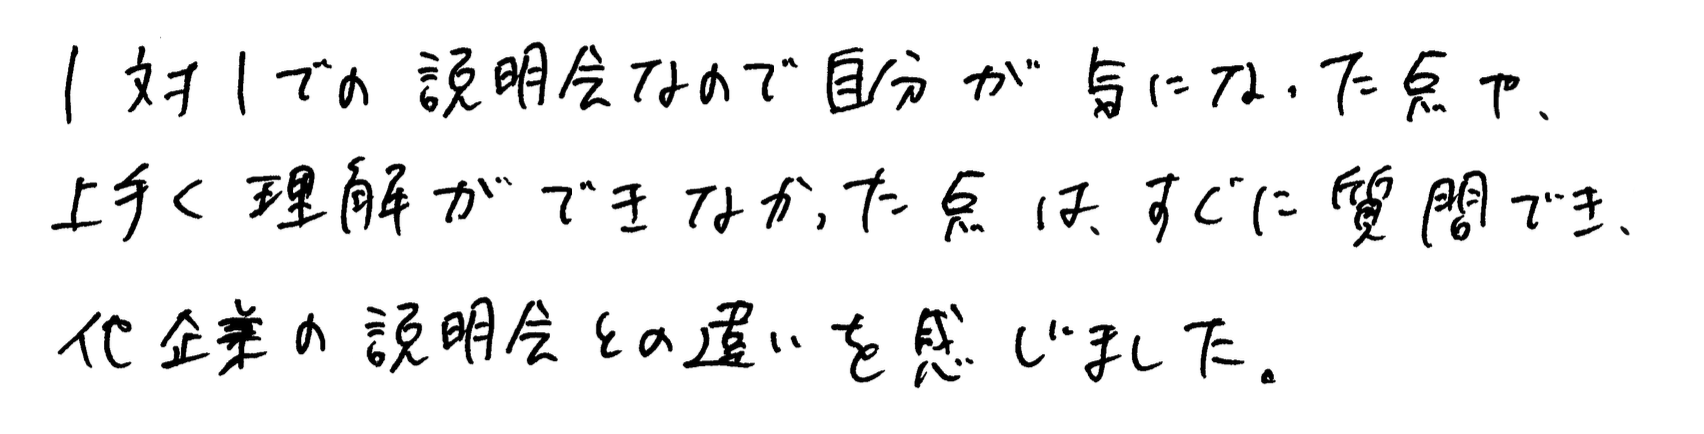 1対1での説明会なので自分が気になった点や、
上手く理解ができなかった点は、すぐに質問でき、
他企業の説明会との違いを感じました。